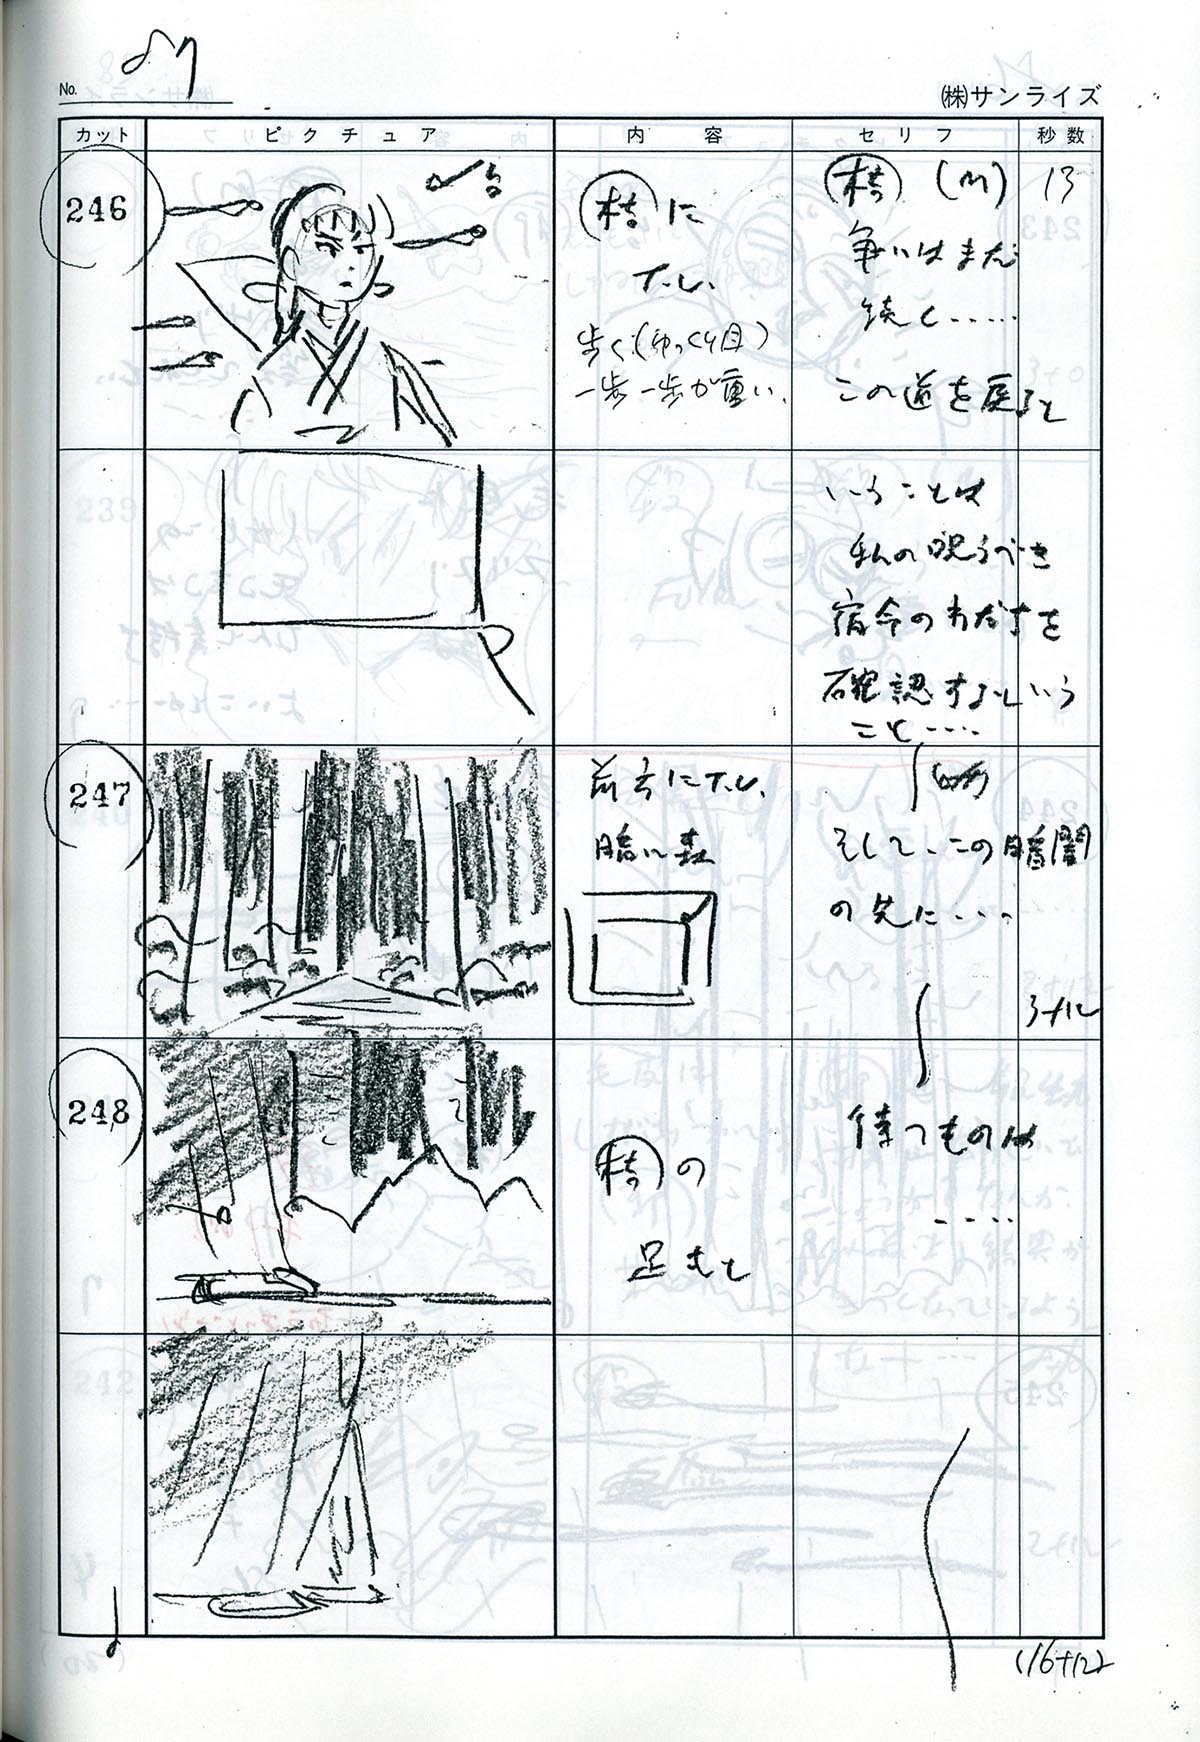 No. 87
(株)サンライズ
カット ピクチュア 内容 セリフ 秒数
246
桔に
T.U.
歩く(ゆっくり目)
一歩一歩が重い、
桔 (M) 13
争いはまだ
続く……
この道を戻ると
いうことは
私の呪うべき
宿命のわだちを
確認するという
こと‥‥
247
前方にT.U.
暗い森
そして、この暗闇
の先に‥‥
3+12
248
桔の
足もと
待つものは
‥‥
(16+12)